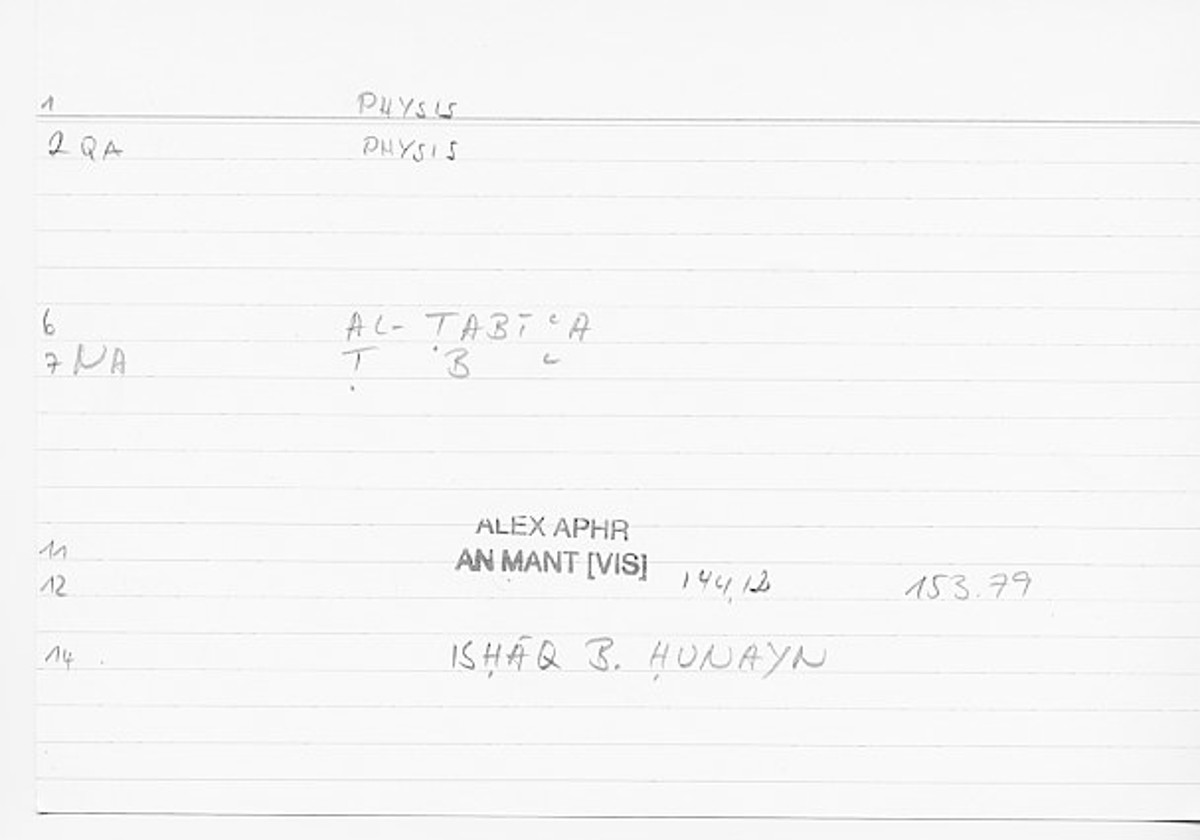 1 PHYSIS
2 QA PHYSIS
6 AL- ṬABĪʿA
7 NA Ṭ B ʿ
ALEX APHR
11 AN MANT [VIS]
12 144,12 153.79
14. ISḤĀQ B. ḤUNAYN